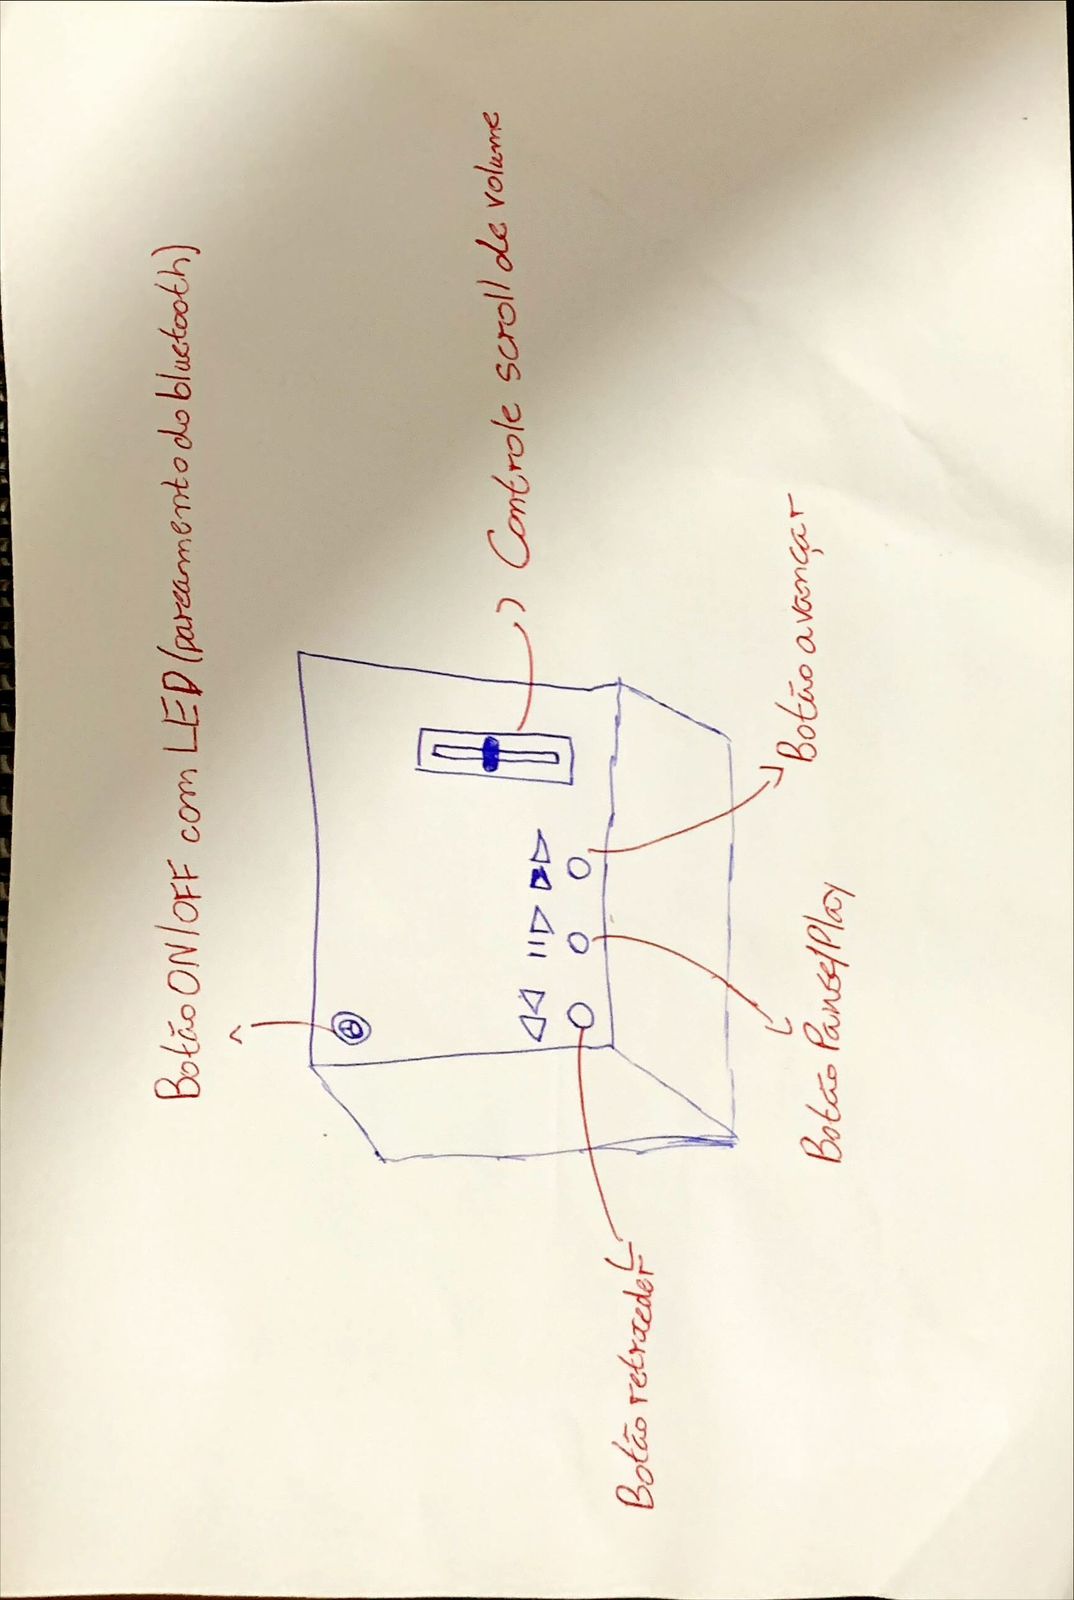 Botão ON/OFF com LED (pareamento do bluetooth)
Controle scroll de volume
Botão retroceder
Botão Pause/Play
Botão avançar